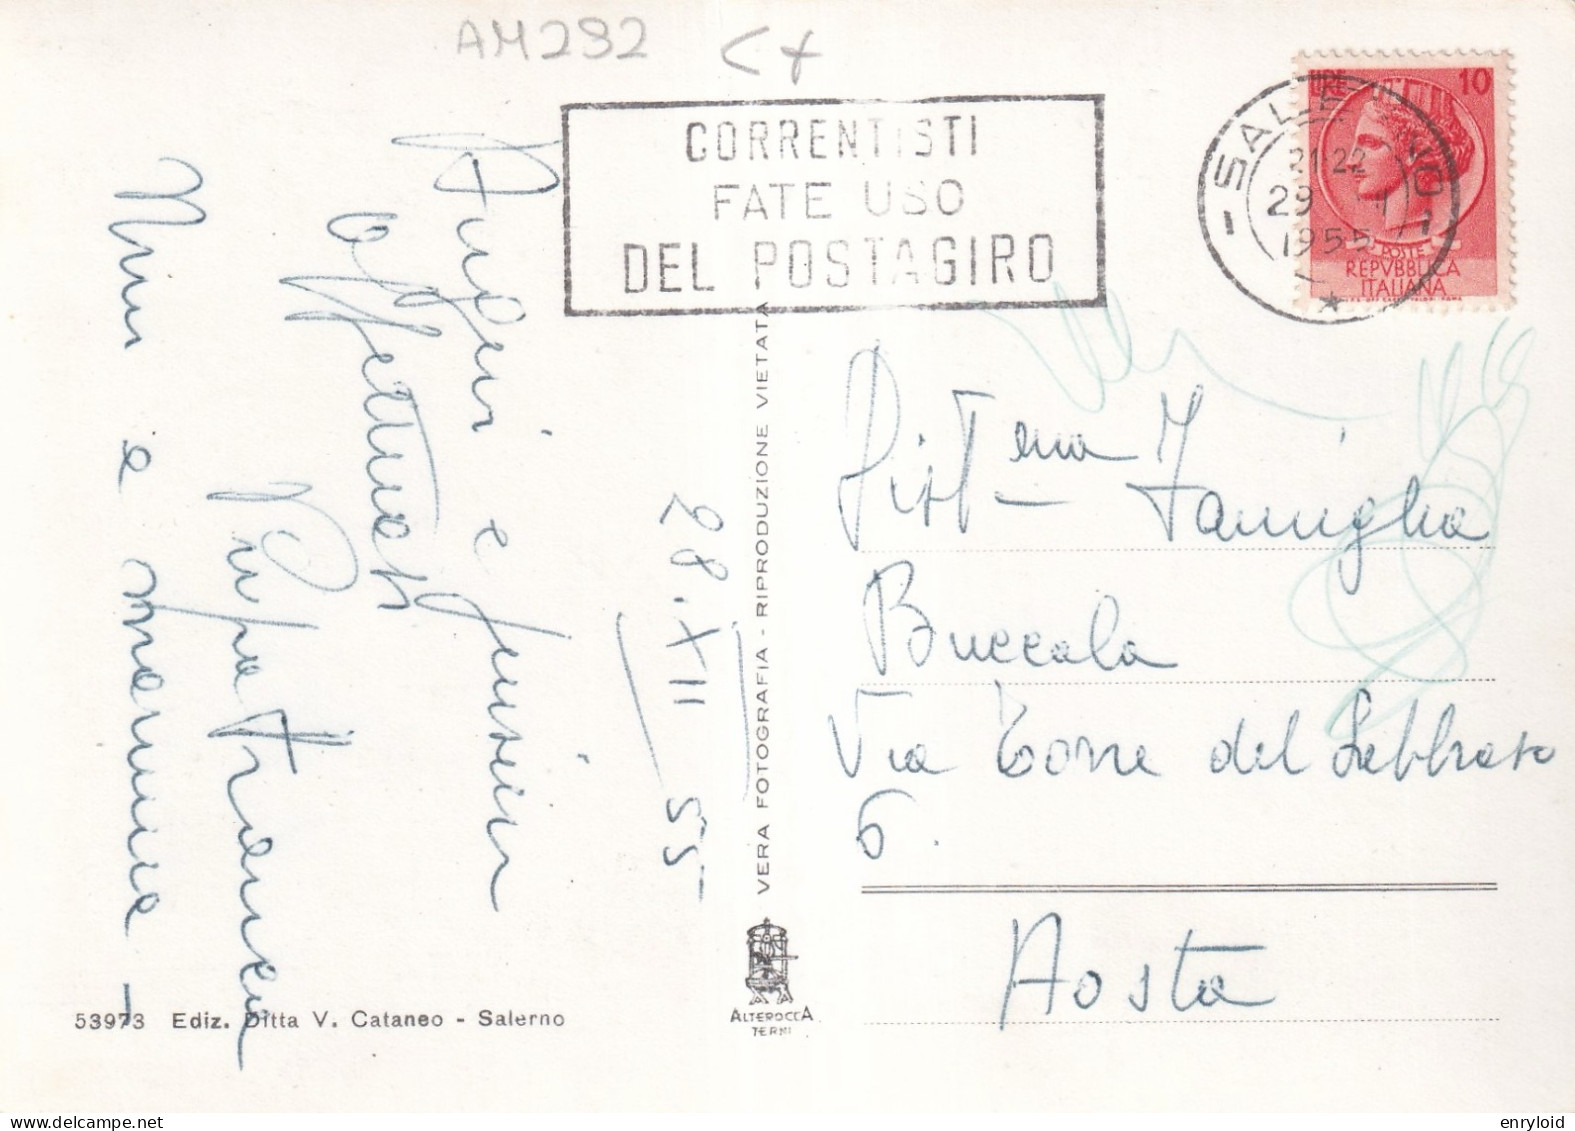 AM292
CORRENTISTI
FATE USO
DEL POSTAGIRO
SALERNO
21·22
29
1955
LIRE 10
POSTE
REPVBBLICA
ITALIANA
Auguri e
affettuosi
Pupa Franca
Mimì e mammà
28.XII 55
VERA FOTOGRAFIA - RIPRODUZIONE VIETATA
Famiglia
Buccola
Via Torre del Lebbroso
6.
Aosta
53973 Ediz. Ditta V. Cataneo - Salerno
ALTEROCCA
TERNI
enryloid